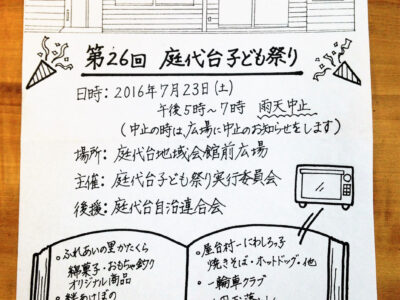 第26回 庭代台子ども祭り
日時：2016年7月23日(土)
午後5時〜7時 雨天中止
(中止の時は、広場に中止のお知らせをします)
場所：庭代台地域会館前広場
主催：庭代台子ども祭り実行委員会
後援：庭代台自治連合会
・ふれあいの里かたくら
綿菓子・おもちゃ釣り
オリジナル商品
・屋台村ーにわしろっ子
焼きそば・ホットドッグ・他
・一輪車クラブ